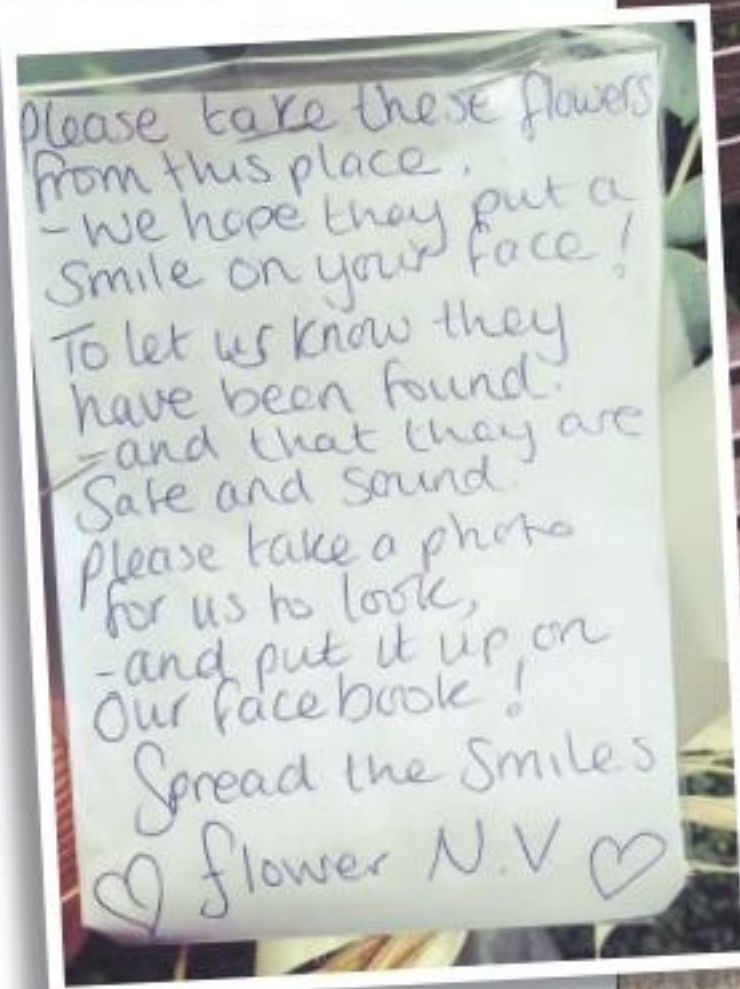 Please take these flowers
from this place.
- We hope they put a
smile on your face!
To let us know they
have been found.
- and that they are
Safe and sound.
please take a photo
for us to look,
- and put it up on
Our facebook!
Spread the Smiles
flower N.V